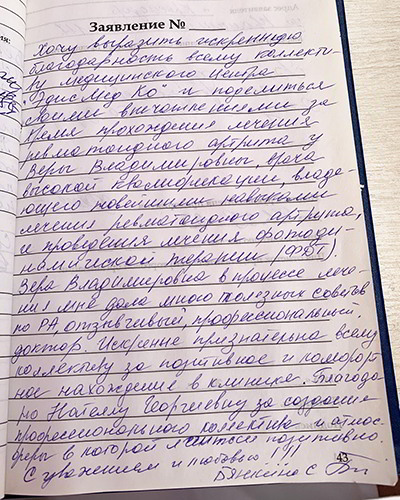 Заявление №
Хочу выразить искреннюю
благодарность всему коллекти-
ву медицинского центра
"Эдис Мед Ко" и поделиться
своими впечатлениями за
время прохождения лечения
ревматоидного артрита у
Веры Владимировны, врача
высокой квалификации владе-
ющего новейшими навыками
лечения ревматоидного артрита,
и проведения лечения фотоди-
намической терапии (ФДТ).
Вера Владимировна в процессе лече-
ния мне дала много полезных советов
по РА, отзывчивый, профессиональный
доктор. Искренне признательна всему
коллективу за позитивное и комфорт-
ное нахождение в клинике. Благода-
рю Наталью Георгиевну за создание
профессионального коллектива и атмос-
феры в которой лечиться позитивно.
С уважением и любовью !!!
43